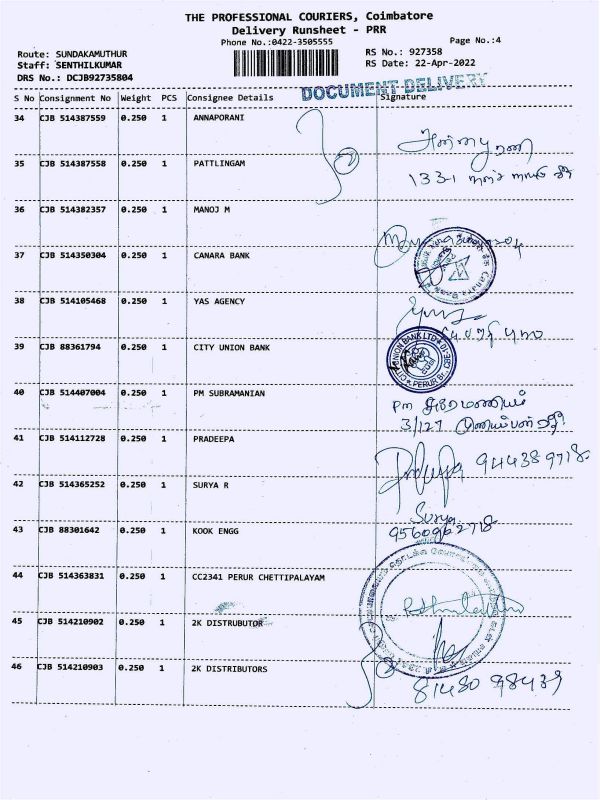 THE PROFESSIONAL COURIERS, Coimbatore
Delivery Runsheet - PRR
Phone No.:0422-3505555
Page No.:4
Route: SUNDAKAMUTHUR
RS No.: 927358
Staff: SENTHILKUMAR
RS Date: 22-Apr-2022
DRS No.: DCJB92735804
DOCUMENT DELIVERY
S No Consignment No Weight PCS Consignee Details Signature
34 CJB 514387559 0.250 1 ANNAPORANI
35 CJB 514387558 0.250 1 PATTLINGAM
133-1
36 CJB 514382357 0.250 1 MANOJ M
37 CJB 514350304 0.250 1 CANARA BANK
Canara Bank
38 CJB 514105468 0.250 1 YAS AGENCY
39 CJB 88361794 0.250 1 CITY UNION BANK
CITY UNION BANK LTD PERUR Br. CBE-10
40 CJB 514407004 0.250 1 PM SUBRAMANIAN
Pm
3/127
41 CJB 514112728 0.250 1 PRADEEPA
944389718
42 CJB 514365252 0.250 1 SURYA R
Surya
9560962718
43 CJB 88301642 0.250 1 KOOK ENGG
44 CJB 514363831 0.250 1 CC2341 PERUR CHETTIPALAYAM
45 CJB 514210902 0.250 1 2K DISTRUBUTOR
46 CJB 514210903 0.250 1 2K DISTRIBUTORS
81480 98439